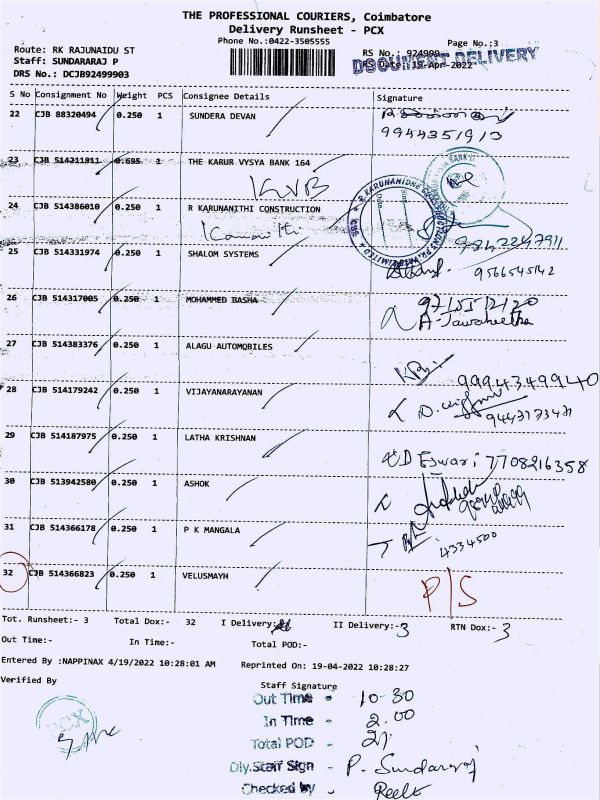 THE PROFESSIONAL COURIERS, Coimbatore
Delivery Runsheet - PCX
Phone No.:0422-3505555
Page No.:3
Route: RK RAJUNAIDU ST
RS No.: 924999
DOCUMENT DELIVERY
Staff: SUNDARARAJ P
RS Date: 19-Apr-2022
DRS No.: DCJB92499903
S No Consignment No Weight PCS Consignee Details Signature
22 CJB 88320494 0.250 1 SUNDERA DEVAN
9944351913
23 CJB 514211811 0.695 1 THE KARUR VYSYA BANK 164
KVB
24 CJB 514386010 0.250 1 R KARUNANITHI CONSTRUCTION
9842247911
25 CJB 514331974 0.250 1 SHALOM SYSTEMS
9566545142
26 CJB 514317005 0.250 1 MOHAMMED BASHA
27 CJB 514383376 0.250 1 ALAGU AUTOMOBILES
9994349940
28 CJB 514179242 0.250 1 VIJAYANARAYANAN
29 CJB 514187975 0.250 1 LATHA KRISHNAN
Eswari 7708216358
30 CJB 513942580 0.250 1 ASHOK
31 CJB 514366178 0.250 1 P K MANGALA
4334500
32 CJB 514366823 0.250 1 VELUSMAYH
P/S
Tot. Runsheet:- 3 Total Dox:- 32 I Delivery:- II Delivery:-3 RTN Dox:-3
Out Time:- In Time:- Total POD:-
Entered By :NAPPINAX 4/19/2022 10:28:01 AM Reprinted On: 19-04-2022 10:28:27
Verified By Staff Signature
Out Time - 10-30
In Time - 2.00
PCX
Total POD - 21
Dly.Staff Sign - P. Sundararaj
Checked by -